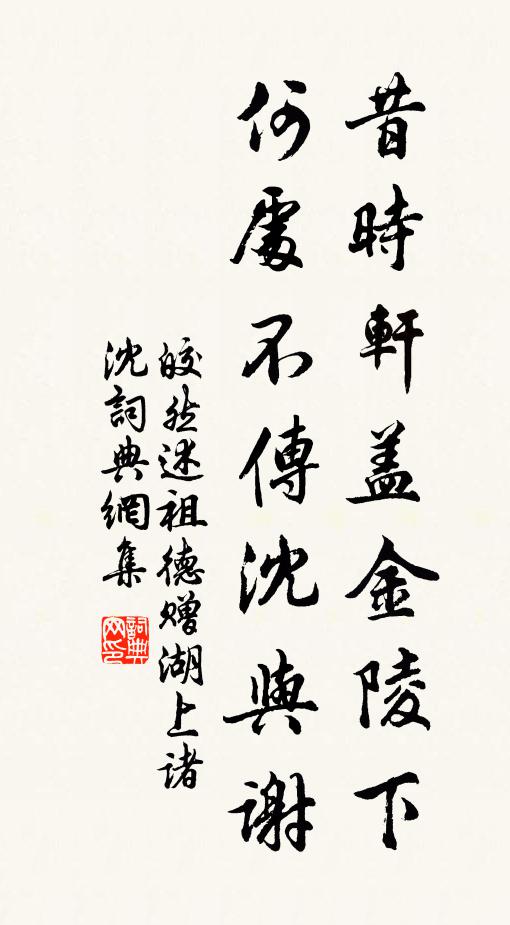 昔時軒盖金陵下
何處不傳沈與謝
皎然述祖德赠湖上諸
沈詞典網集
詞典网印